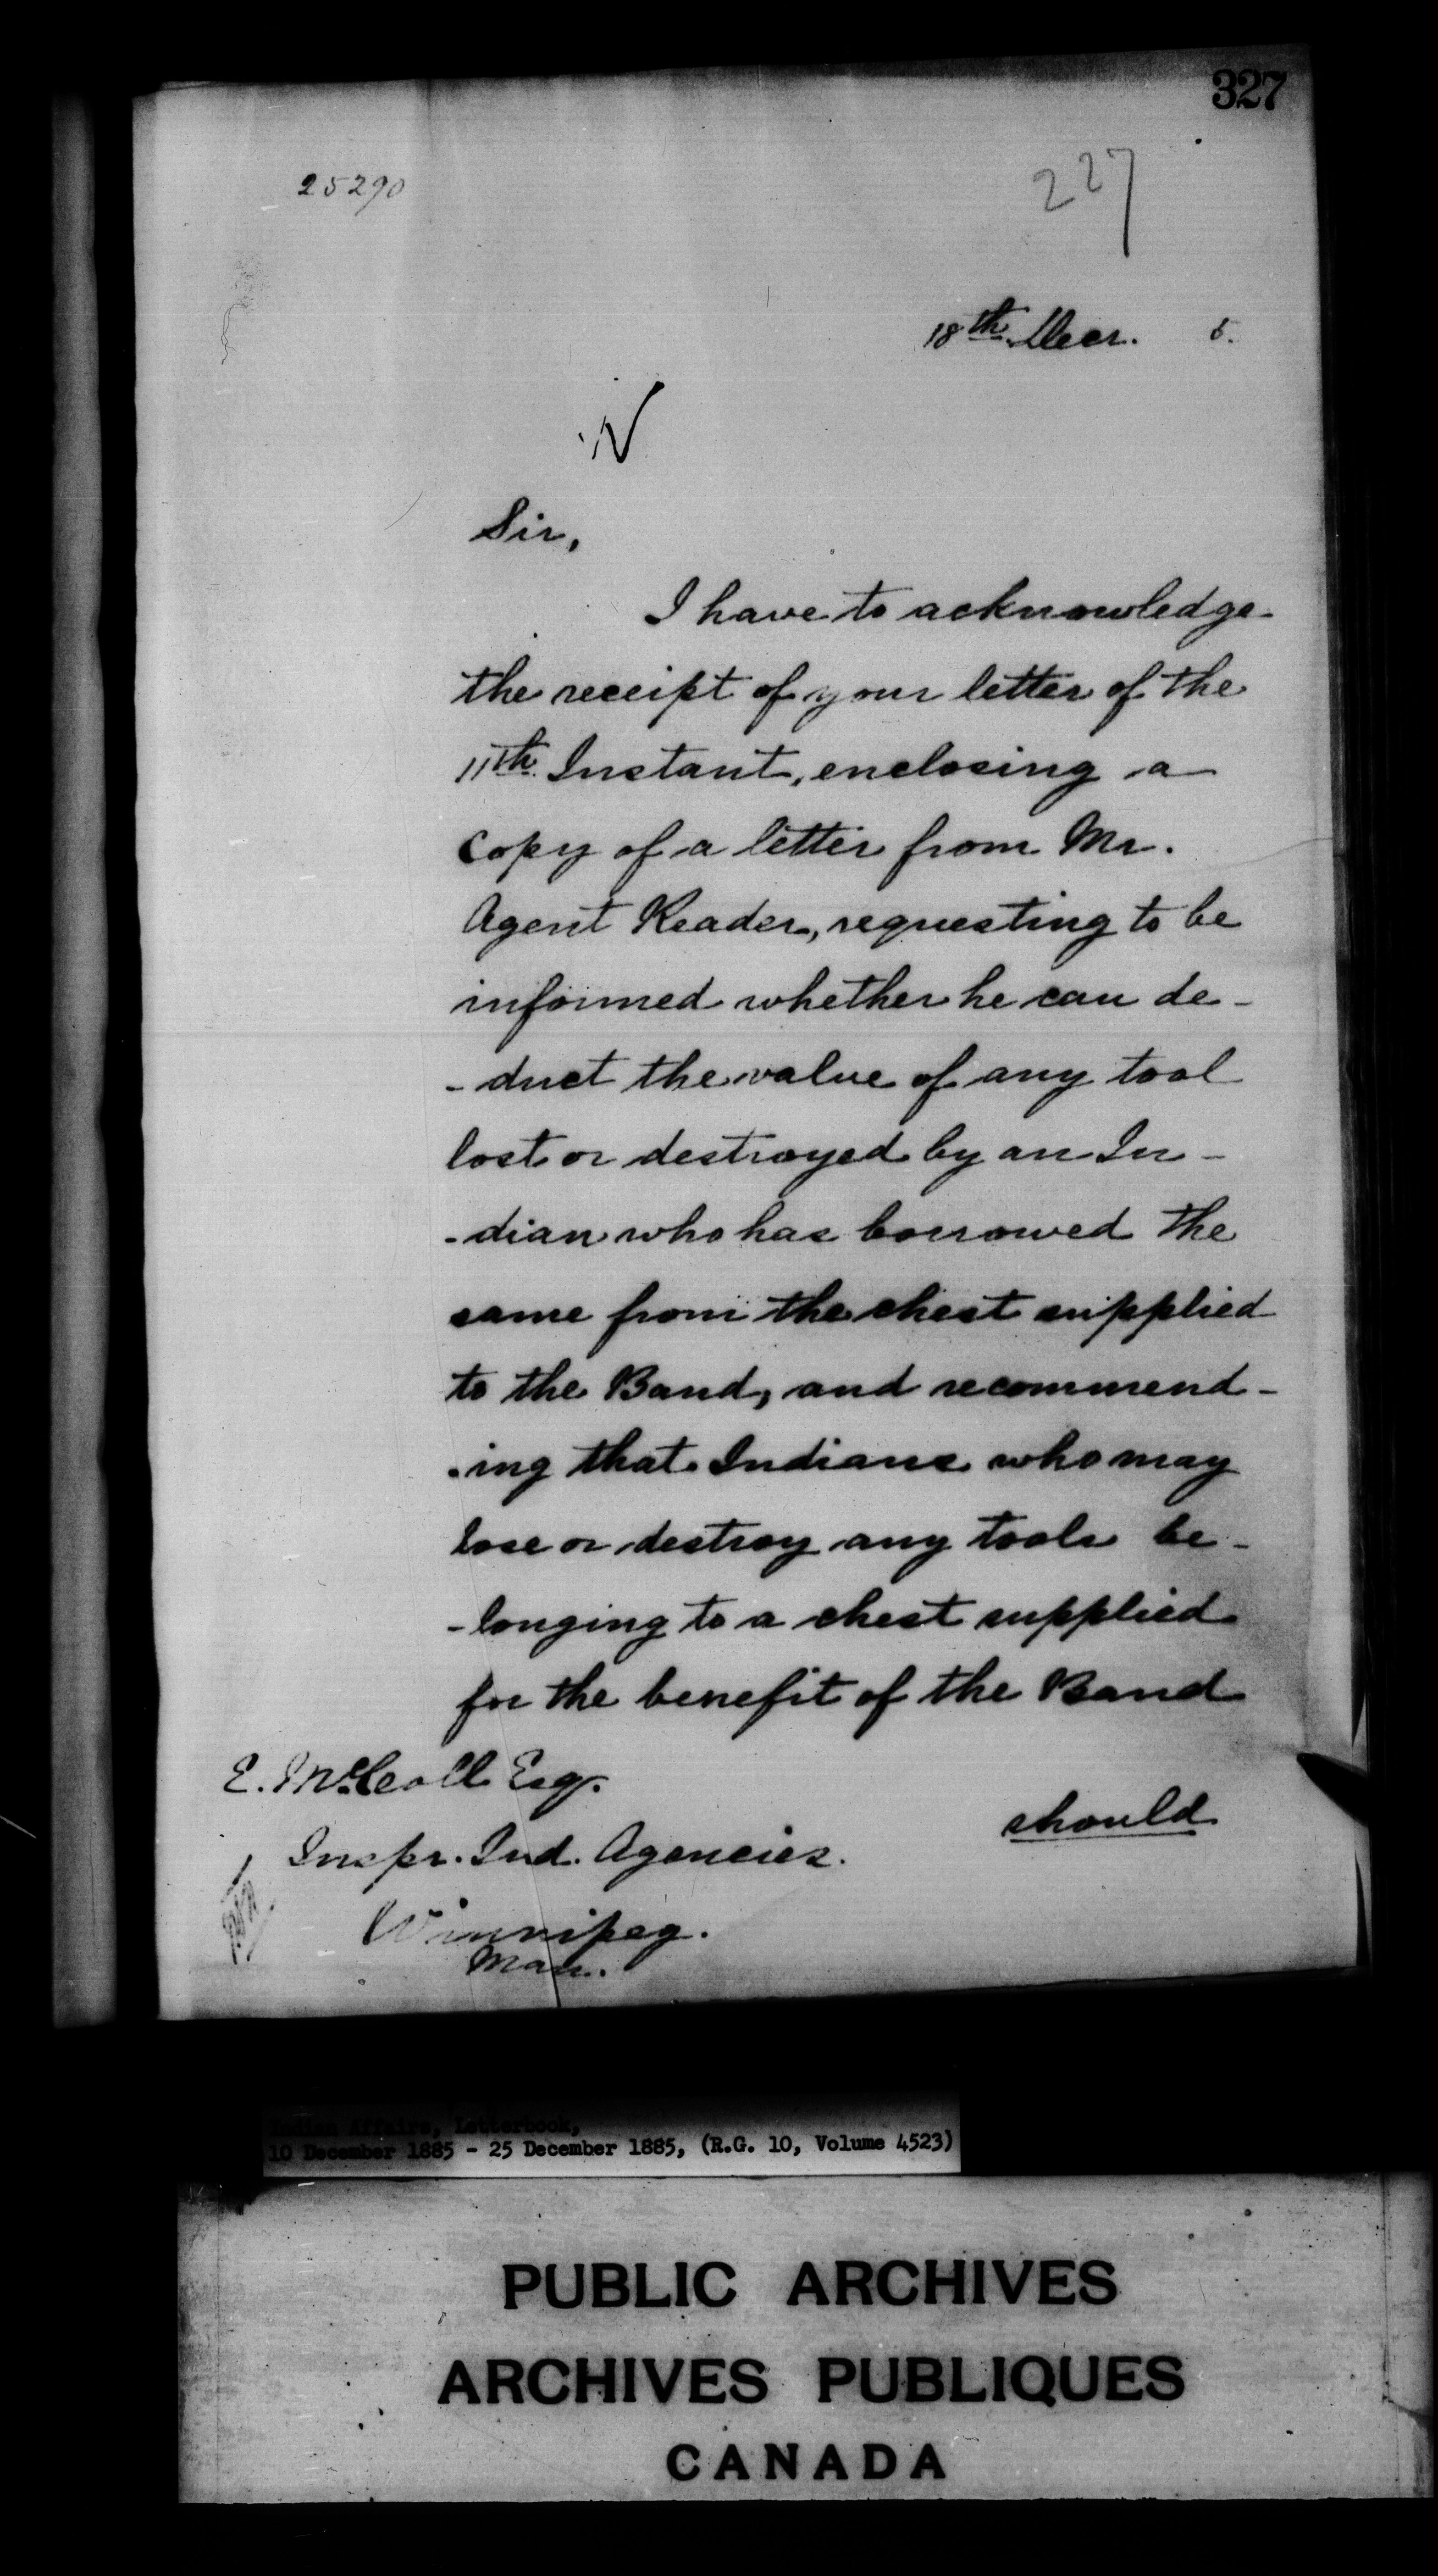 327
25290
227
18th Decr. 5.
Sir,
I have to acknowledge
the receipt of your letter of the
11th Instant, enclosing a
copy of a letter from Mr.
Agent Reader, requesting to be
informed whether he can de-
-duct the value of any tool
lost or destroyed by an In-
-dian who has borrowed the
same from the chest supplied
to the Band, and recommend-
-ing that Indians who may
lose or destroy any tools be-
-longing to a chest supplied
for the benefit of the Band
should
E. McColl Esq.
Inspr. Ind. Agencies.
Winnipeg.
Man.
Indian Affairs, Letterbook,
10 December 1885 - 25 December 1885, (R.G. 10, Volume 4523)
PUBLIC ARCHIVES
ARCHIVES PUBLIQUES
CANADA